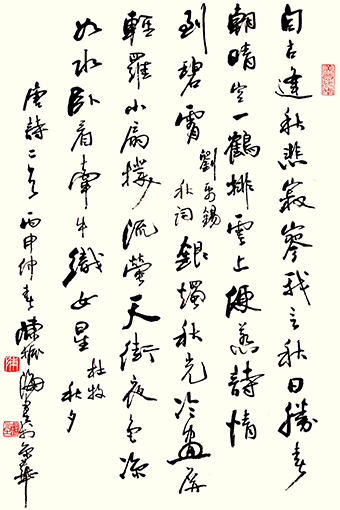 自古逢秋悲寂寥我言秋日勝春
朝晴空一鶴排雲上便惹詩情
到碧霄
劉禹錫
秋詞
銀燭秋光冷畫屏
輕羅小扇撲流螢天街夜色涼
如水卧看牽牛織女星
杜牧
秋夕
唐詩二首丙申仲春陳海書於京華